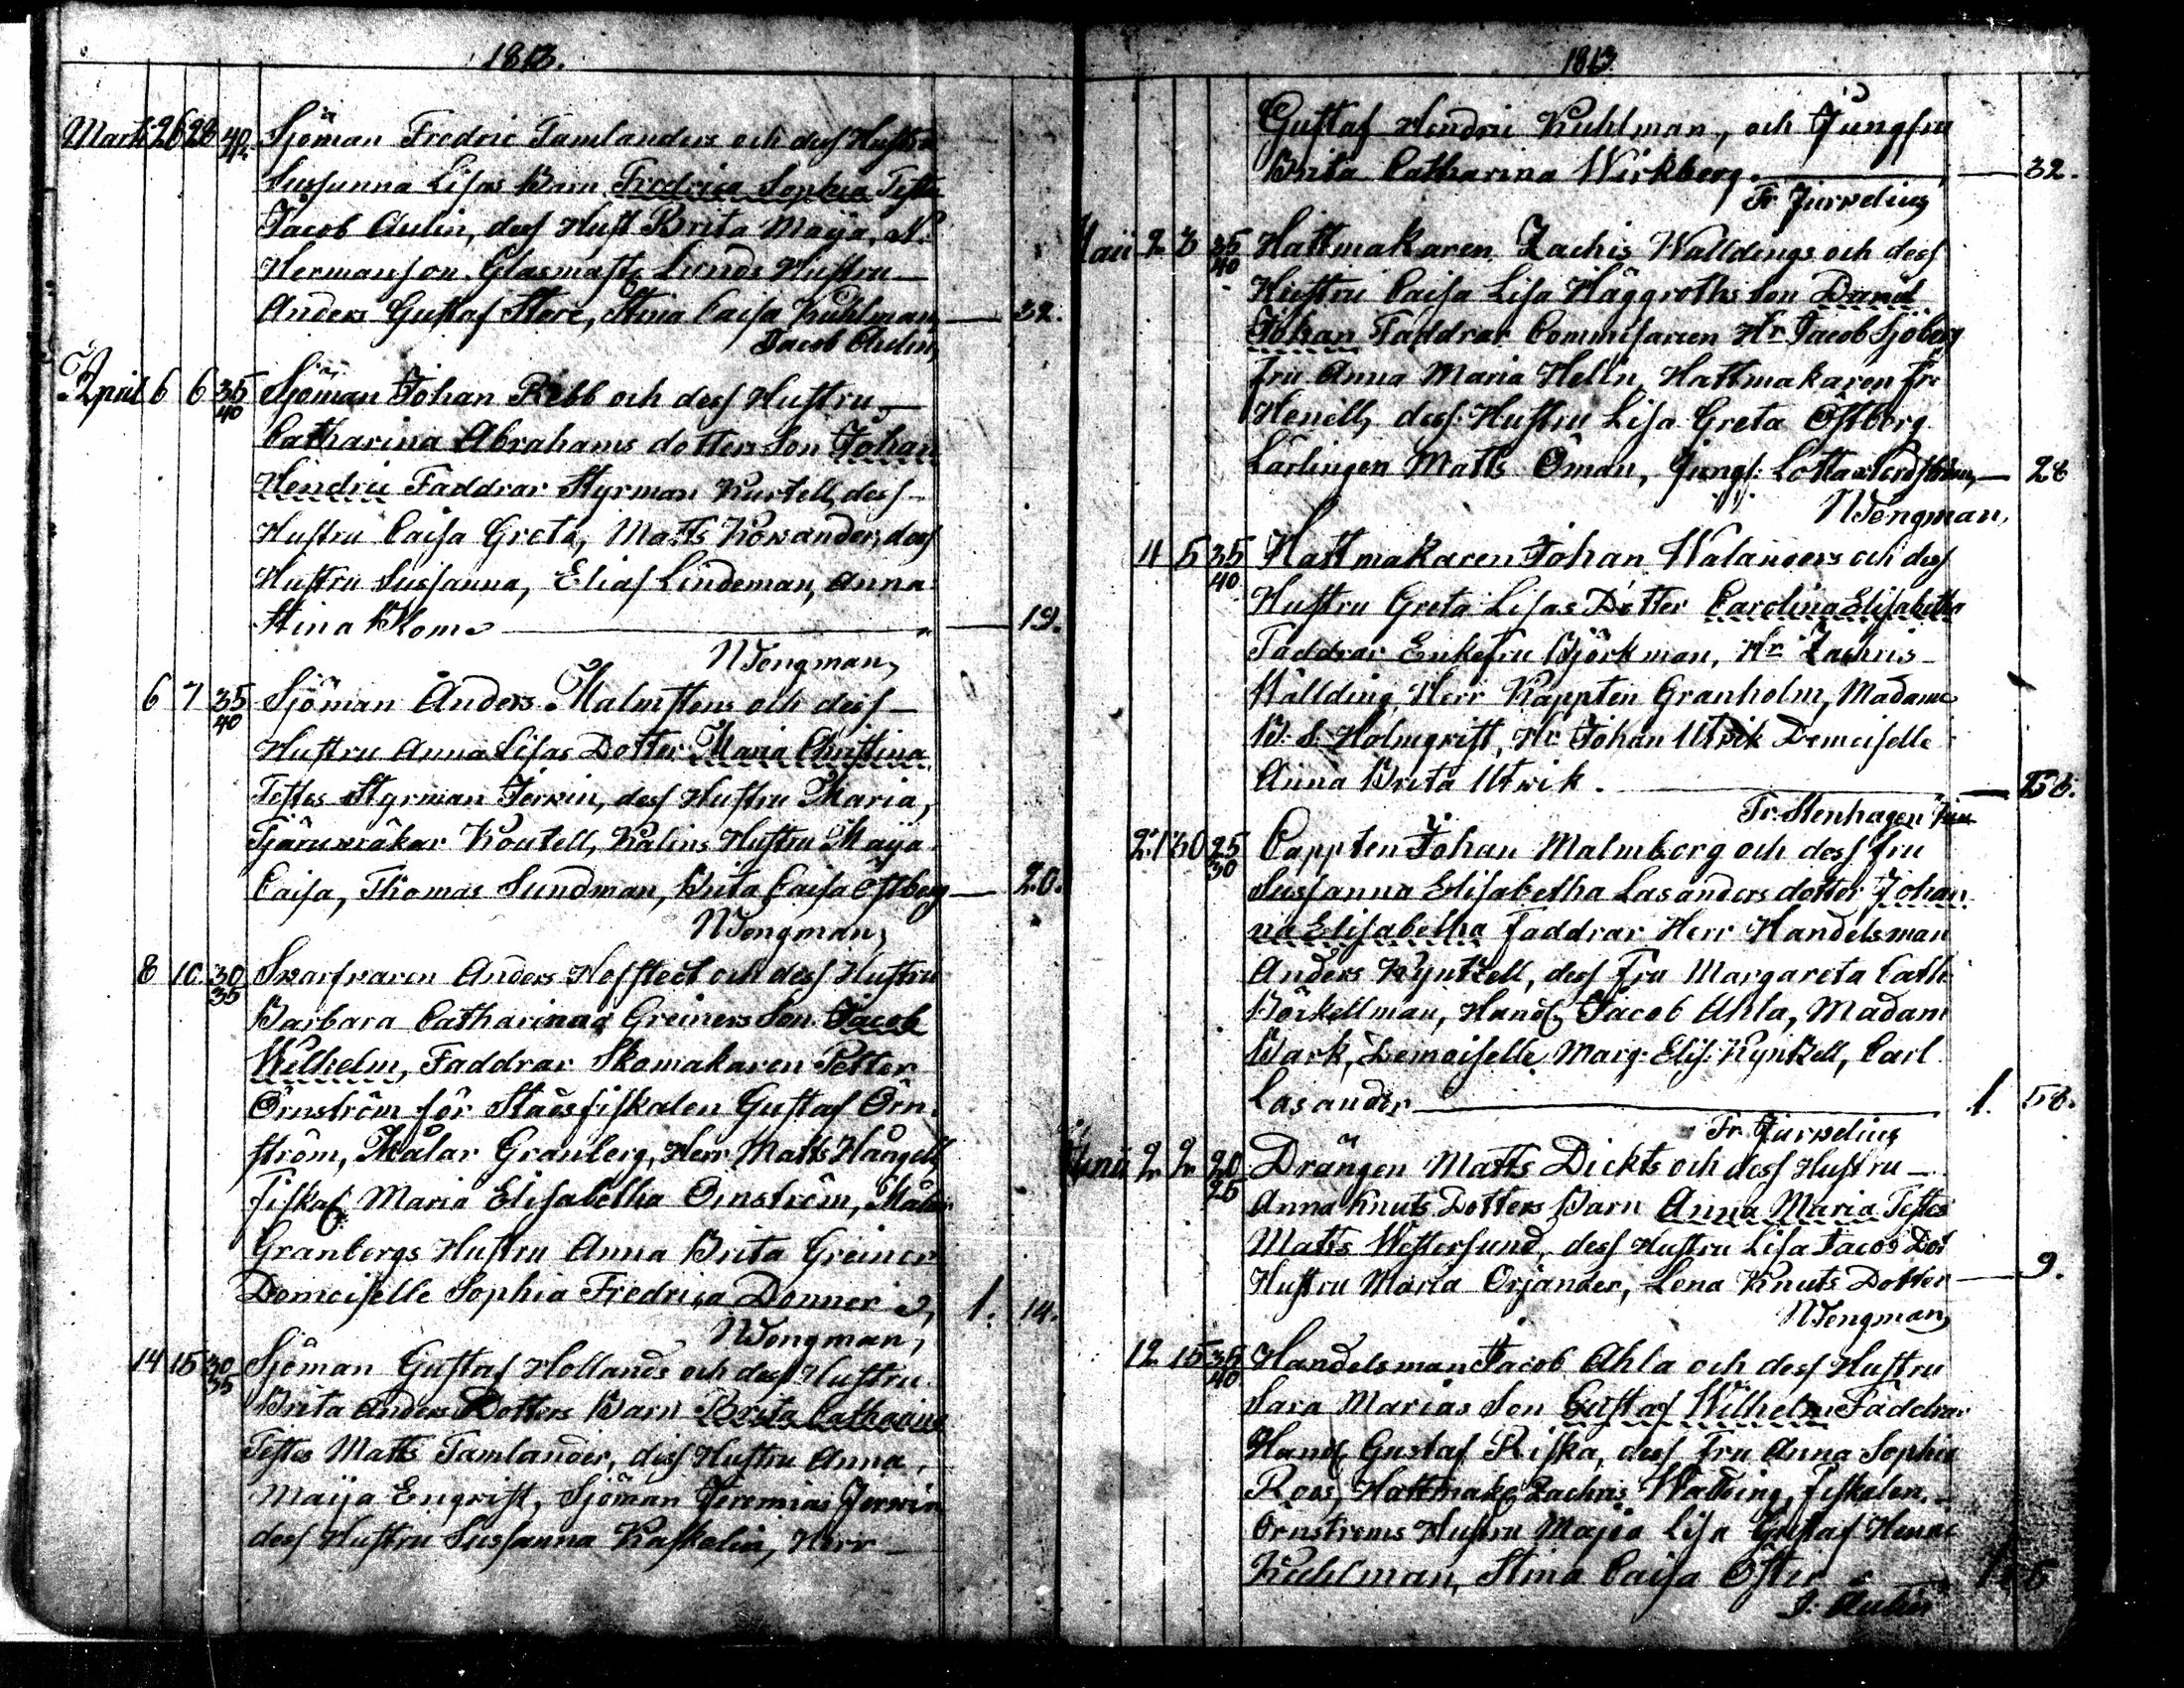 1813.
Martii 26 28 40/45 Sjöman Fredric Tamlanders och dess Hustru
Sussanna Lisas Barn Fredrica Sophia Testes
Jacob Aulin, dess Hust Brita Maija, N.
Hermanson. Glasmast: Lunds Hustru
Anders Gustaf Stare, Stina Caisa Kuhlman — 32.
Jacob Aulin,
April 6 6 35/40 Sjöman Johan Rebb och dess Hustru
Catharina Abrahams dotters Son Johan
Hendric Faddrar Styrman Kurtell, dess
Hustru Caisa Greta, Matts Kowander, dess
Hustru Sussanna, Elias Lindeman, Anna
Stina Blom — 19.
N Tengman,
6 7 35/40 Sjöman Anders Malmstens och dess
Hustru Anna Lisas Dotter Maria Christina
Testes Styrman Jerwin, dess Hustru Maria,
Tjäruwräkar Koutell, Kalins Hustru Maija
Caisa, Thomas Sundman, Brita Caisa Östberg — 20.
N Tengman,
8 10 30/35 Swarfvaren Anders Hefstedt och dess Hustru
Barbara Catharinas Greiners Son Jacob
Wilhelm, Faddrar Skomakaren Petter
Örnström för Stadsfiskalen Gustaf Örn
ström, Målar Granberg, Herr Matts
Fiskal: Maria Elisabetha Örnström, Målar
Granbergs Hustru Anna Brita Greiner
Demoiselle Sophia Fredrica Donner 1. 14.
N Tengman,
14 15 30/35 Sjöman Gustaf Hollands och dess Hustru
Brita Anders Dotters Barn Brita Catharina
Testes Matts Tamlander, dess Hustru Anna,
Maija Enqvist, Sjöman Jeremias Jerwin
dess Hustru Sussanna Kaskelin, Herr
1813.
Gustaf Hendric Kuhlman, och Jungfru
Brita Catharina Wirkberg. — 32.
Fr. Jurvelius
Maii 2 3 35/40 Hattmakaren Zachis Walldings och dess
Hustru Caisa Lisa Häggroths Son Daniel
Johan Faddrar Commisarien Hr Jacob Sjöberg
Fru Anna Maria Helln, Hattmakaren Fr:
Henell, dess Hustru Lisa Greta Östberg
Lärlingen Matts Öman, Jungf: Lotta — 28
N Tengman,
4 5 35/40 Hattmakaren Johan Walanders och dess
Hustru Greta Lisas Dotter Carolina Elisabetha
Faddrar Enkefru Björkman, Hr Zachris
Wällding, Herr Kappten Granholm, Madame
B. S. Holmqvist, Hr Johan Utrik Demoiselle
Anna Brita Utrik. — 58.
Fr. Stenhagen
21 30 25/30 Cappten Johan Malmberg och dess Fru
Sussanna Elisabetha Lasanders dotter Johan
na Elisabetha Faddrar Herr Handelsman
Anders Kyntzell, dess Fru Margareta Cath:
Börkellman, Hand: Jacob Ahla, Madam
Wark, Demoiselle Marg: Elis: Kyntzell, Carl
Lasander — 1. 58.
Fr. Jurvelius
Junii 2 2 20/25 Drängen Matts Dickts och dess Hustru
Anna Knuts Dotters Barn Anna Maria Testes
Matts Westersund, dess Hustru Lisa Jacobs Dot
Hustru Maria Orjander, Lena Knuts Dotter — 9.
N Tengman,
12 15 35/40 Handelsman Jacob Ahla och dess Hustru
Sara Marias Son Gustaf Wilhelm Faddrar
Hand: Gustaf Riska, dess Fru Anna Sophia
Roos, Hattmak: Zachris Wallding, Fiskalen
Örnströms Hustru Majea Lisa Gustaf Henric
Kuhlman, Stina Caisa Öster 1. 6
J. Aulin